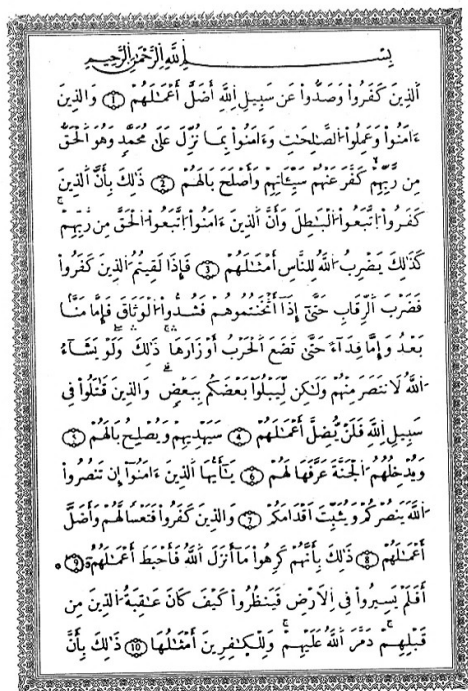 بِسْمِ اِللَّهِ اِلرَّحْمَٰنِ اِلرَّحِيمِ
اَلذِينَ كَفَرُواْ وَصَدُّواْ عَن سَبِيلِ اِللَّهِ أَضَلَّ أَعْمَٰلَهُمْ 1 وَالذِينَ
ءَامَنُواْ وَعَمِلُواْ اُلصَّٰلِحَٰتِ وَءَامَنُواْ بِمَا نُزِّلَ عَلَىٰ مُحَمَّدٍ وَهُوَ اَلْحَقُّ
مِن رَّبِّهِمْ كَفَّرَ عَنْهُمْ سَيِّـَٔاتِهِمْ وَأَصْلَحَ بَالَهُمْ 2 ذَٰلِكَ بِأَنَّ اَلذِينَ
كَفَرُواْ اُتَّبَعُواْ اُلْبَٰطِلَ وَأَنَّ اَلذِينَ ءَامَنُواْ اُتَّبَعُواْ اُلْحَقَّ مِن رَّبِّهِمْ
كَذَٰلِكَ يَضْرِبُ اُللَّهُ لِلنَّاسِ أَمْثَٰلَهُمْ 3 فَإِذَا لَقِيتُمُ اُلذِينَ كَفَرُواْ
فَضَرْبَ اَلرِّقَابِ حَتَّىٰ إِذَا أَثْخَنتُمُوهُمْ فَشُدُّواْ اُلْوَثَاقَ فَإِمَّا مَنًّا
بَعْدُ وَإِمَّا فِدَآءً حَتَّىٰ تَضَعَ اَلْحَرْبُ أَوْزَارَهَا ذَٰلِكَ وَلَوْ يَشَآءُ
اُللَّهُ لَانتَصَرَ مِنْهُمْ وَلَٰكِن لِّيَبْلُوَاْ بَعْضَكُم بِبَعْضٍ وَالذِينَ قَٰتَلُواْ فِي
سَبِيلِ اِللَّهِ فَلَنْ يُّضِلَّ أَعْمَٰلَهُمْ 4 سَيَهْدِيهِمْ وَيُصْلِحُ بَالَهُمْ 5
وَيُدْخِلُهُمُ اُلْجَنَّةَ عَرَّفَهَا لَهُمْ 6 يَٰأَيُّهَا اَلذِينَ ءَامَنُواْ إِن تَنصُرُواْ
اُللَّهَ يَنصُرْكُمْ وَيُثَبِّتَ اَقْدَامَكُمْ 7 وَالذِينَ كَفَرُواْ فَتَعْسًا لَّهُمْ وَأَضَلَّ
أَعْمَٰلَهُمْ 8 ذَٰلِكَ بِأَنَّهُمْ كَرِهُواْ مَا أَنزَلَ اَللَّهُ فَأَحْبَطَ أَعْمَٰلَهُمْ 9
أَفَلَمْ يَسِيرُواْ فِي اِلْأَرْضِ فَيَنظُرُواْ كَيْفَ كَانَ عَٰقِبَةُ اُلذِينَ مِن
قَبْلِهِمْ دَمَّرَ اَللَّهُ عَلَيْهِمْ وَلِلْكَٰفِرِينَ أَمْثَٰلُهَا 10 ذَٰلِكَ بِأَنَّ